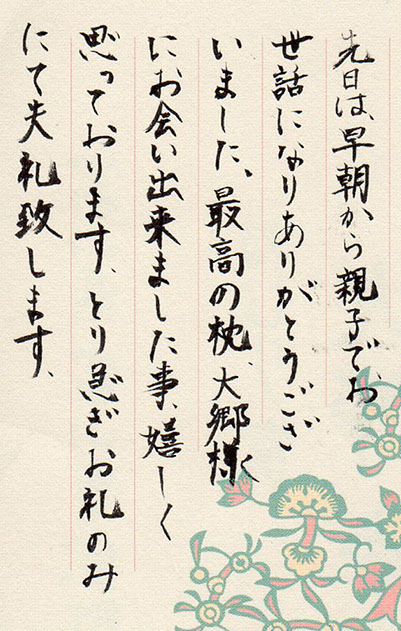 先日は、早朝から親子でお
世話になりありがとうござ
いました、最高の枕、大郷様
にお会い出来ました事、嬉しく
思っております、とり急ぎお礼のみ
にて失礼致します、